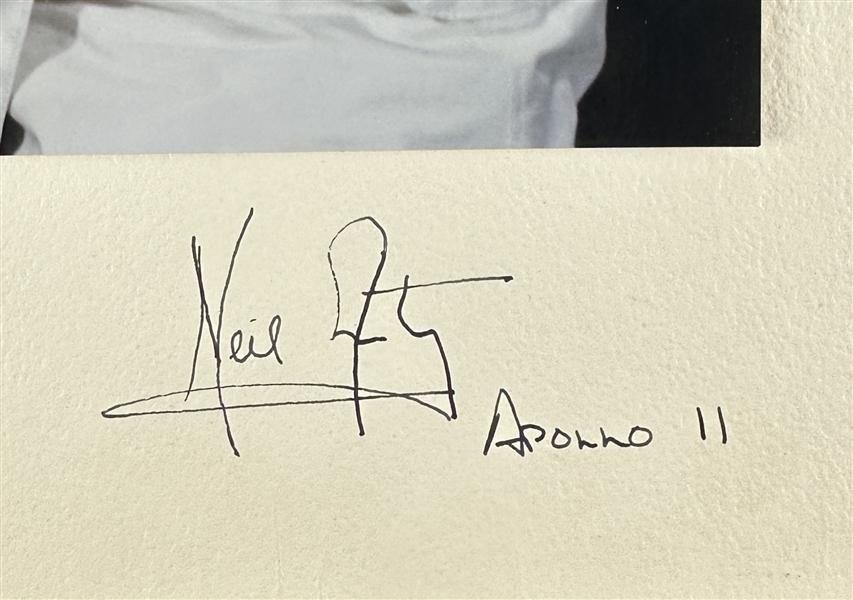 Neil
Apollo 11